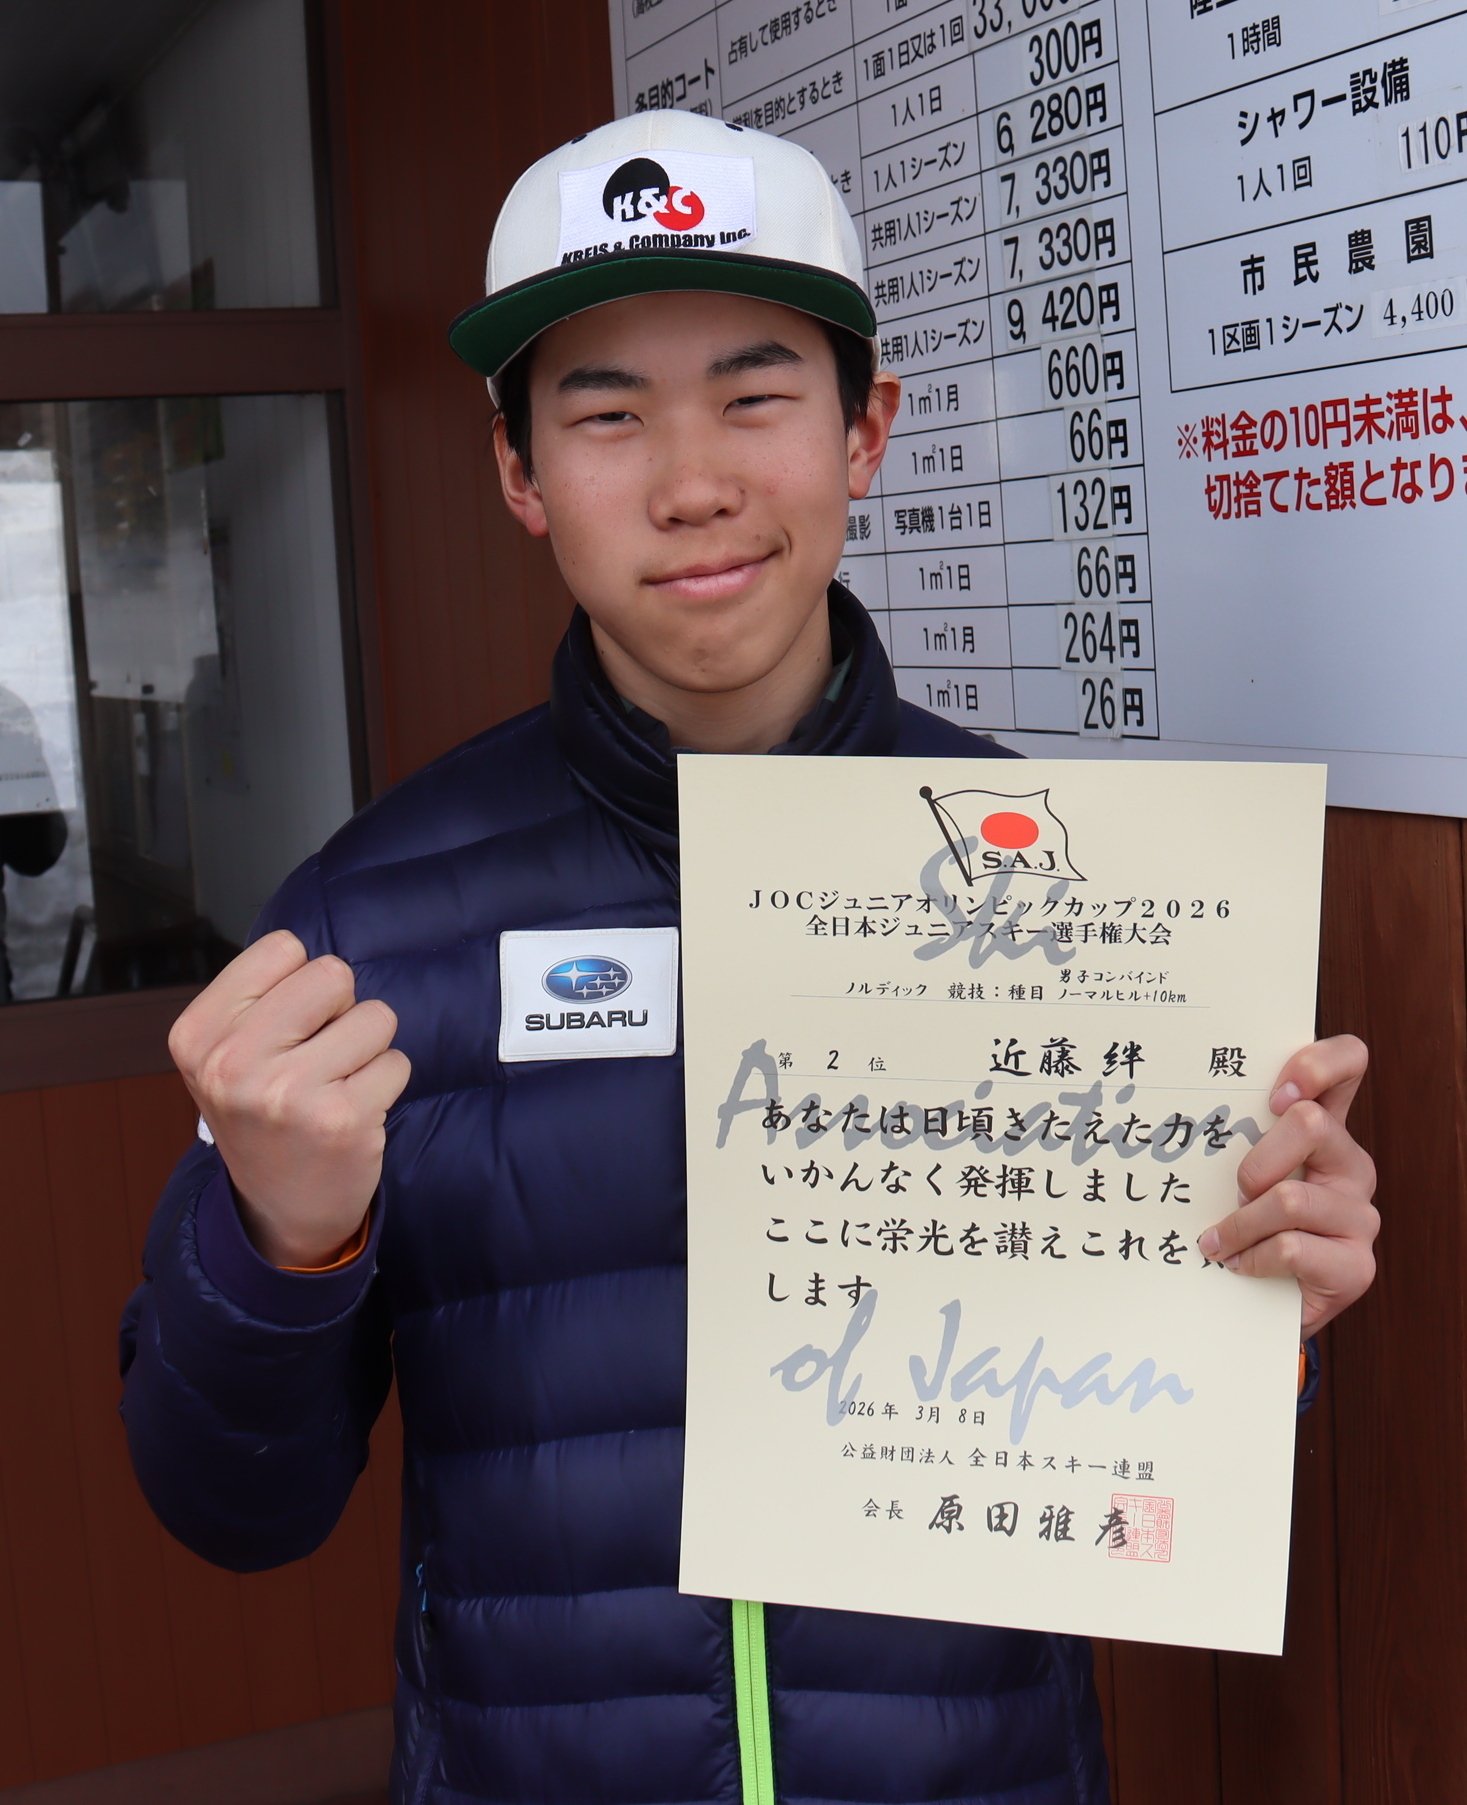 占有して使用するとき
1面1日又は1回
300円
1人1日
6,280円
1人1シーズン
7,330円
共用1人1シーズン
7,330円
共用1人1シーズン
9,420円
共用1人1シーズン
660円
1㎡1月
66円
1㎡1日
132円
撮影
写真機1台1日
66円
1㎡1日
264円
1㎡1月
26円
1㎡1日
1時間
シャワー設備
1人1回
110円
市民農園
1区画1シーズン
4,400
※料金の10円未満は、
切捨てた額となりま
K&C
KREIS & Company Inc.
SUBARU
S.A.J.
Ski
Association
of Japan
JOCジュニアオリンピックカップ2026
全日本ジュニアスキー選手権大会
男子コンバインド
ノルディック 競技:種目 ノーマルヒル+10km
第 2 位 近藤 絆 殿
あなたは日頃きたえた力を
いかんなく発揮しました
ここに栄光を讃えこれを
します
2026年 3月 8日
公益財団法人 全日本スキー連盟
会長 原田雅彦